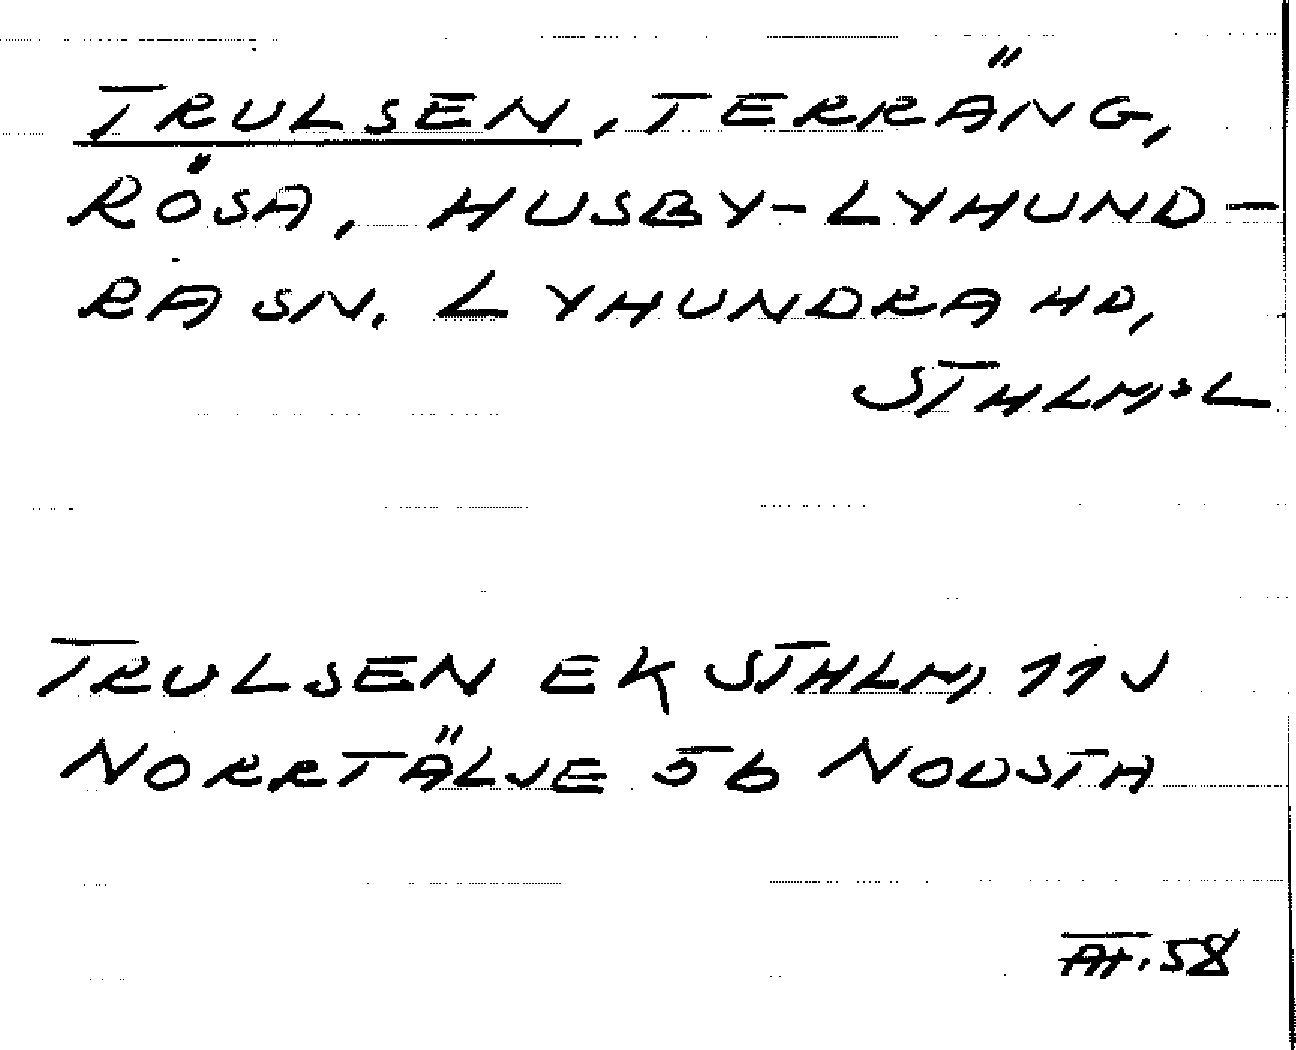 TRULSEN, TERRÄNG,
RÖSA, HUSBY-LYHUND-
RA SN. LYHUNDRA HD,
STHLM:S L
TRULSEN EK STHLM, 11J
NORRTÄLJE 5b NODSTA